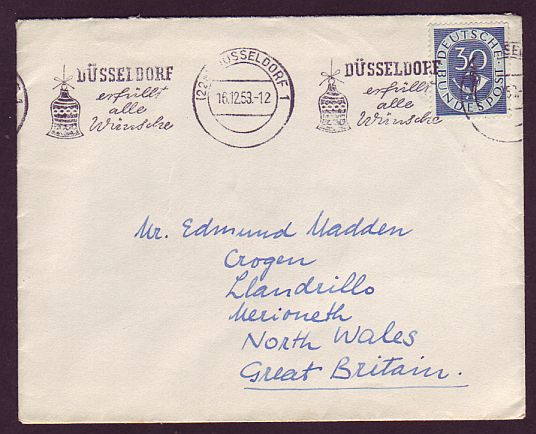 DÜSSELDORF
erfüllt
alle
Wünsche
(22a) DÜSSELDORF 1
16.12.53.-12
DÜSSELDORF
erfüllt
alle
Wünsche
DEUTSCHE
BUNDESPOST
30
Mr. Edmund Madden
Crogen
Llandrillo
Merioneth
North Wales
Great Britain.